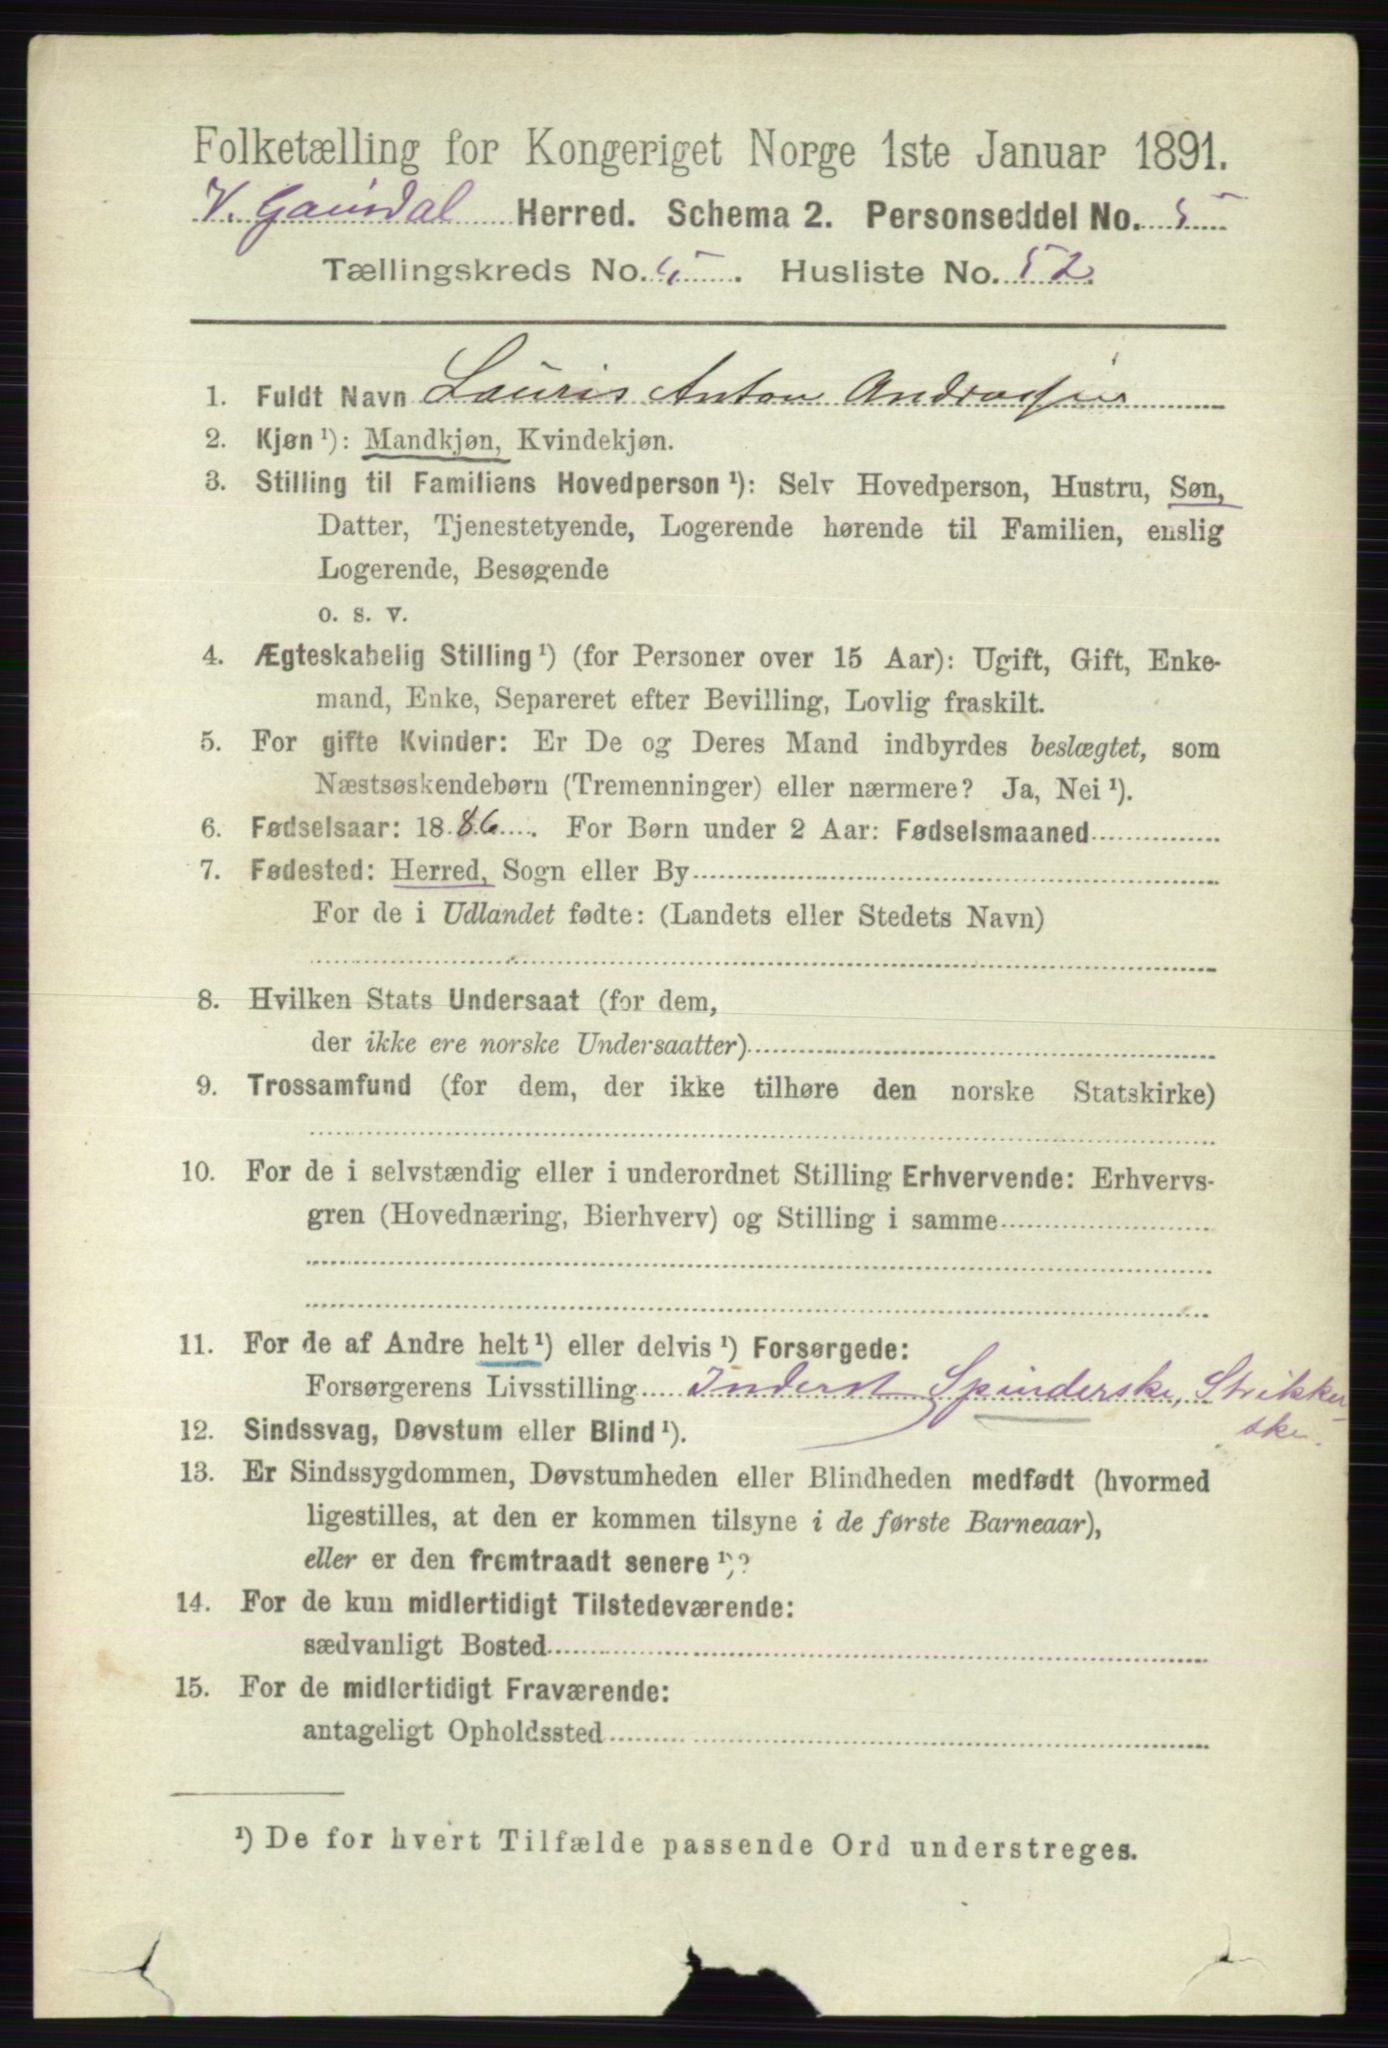 Folketælling for Kongeriget Norge 1ste Januar 1891.
V. Gausdal Herred. Schema 2. Personseddel No. 5
Tællingskreds No. 5. Husliste No. 52.
1. Fuldt Navn Lauris Anton
2. Kjøn ¹): Mandkjøn, Kvindekjøn.
3. Stilling til Familiens Hovedperson ¹): Selv Hovedperson, Hustru, Søn,
Datter, Tjenestetyende, Logerende hørende til Familien, enslig
Logerende, Besøgende
o. s. v.
4. Ægteskabelig Stilling ¹) (for Personer over 15 Aar): Ugift, Gift, Enke-
mand, Enke, Separeret efter Bevilling, Lovlig fraskilt.
5. For gifte Kvinder: Er De og Deres Mand indbyrdes beslægtet, som
Næstsøskendebørn (Tremenninger) eller nærmere? Ja, Nei ¹).
6. Fødselsaar: 1886. For Børn under 2 Aar: Fødselsmaaned
7. Fødested: Herred, Sogn eller By
For de i Udlandet fødte: (Landets eller Stedets Navn)
8. Hvilken Stats Undersaat (for dem,
der ikke ere norske Undersaatter)
9. Trossamfund (for dem, der ikke tilhøre den norske Statskirke)
10. For de i selvstændig eller i underordnet Stilling Erhvervende: Erhvervs-
gren (Hovednæring, Bierhverv) og Stilling i samme
11. For de af Andre helt ¹) eller delvis ¹) Forsørgede:
Forsørgerens Livsstilling Inderst Spinderske, Strikker-
ske.
12. Sindssvag, Døvstum eller Blind ¹).
13. Er Sindssygdommen, Døvstumheden eller Blindheden medfødt (hvormed
ligestilles, at den er kommen tilsyne i de første Barneaar),
eller er den fremtraadt senere ¹)?
14. For de kun midlertidigt Tilstedeværende:
sædvanligt Bosted
15. For de midlertidigt Fraværende:
antageligt Opholdssted
¹) De for hvert Tilfælde passende Ord understreges.